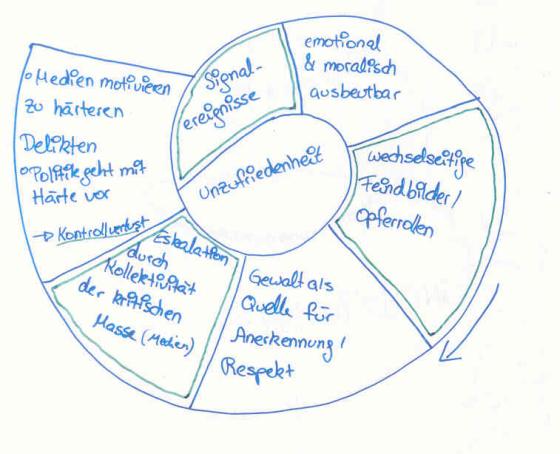 Signal-
ereignisse
emotional
& moralisch
ausbeutbar
wechselseitige
Feindbilder/
Opferrollen
Gewalt als
Quelle für
Anerkennung/
Respekt
Eskalation
durch
Kollektivität
der kritischen
Masse (Medien)
o Medien motivieren
zu härteren
Delikten
o Politik geht mit
Härte vor
→ Kontrollverlust
Unzufriedenheit